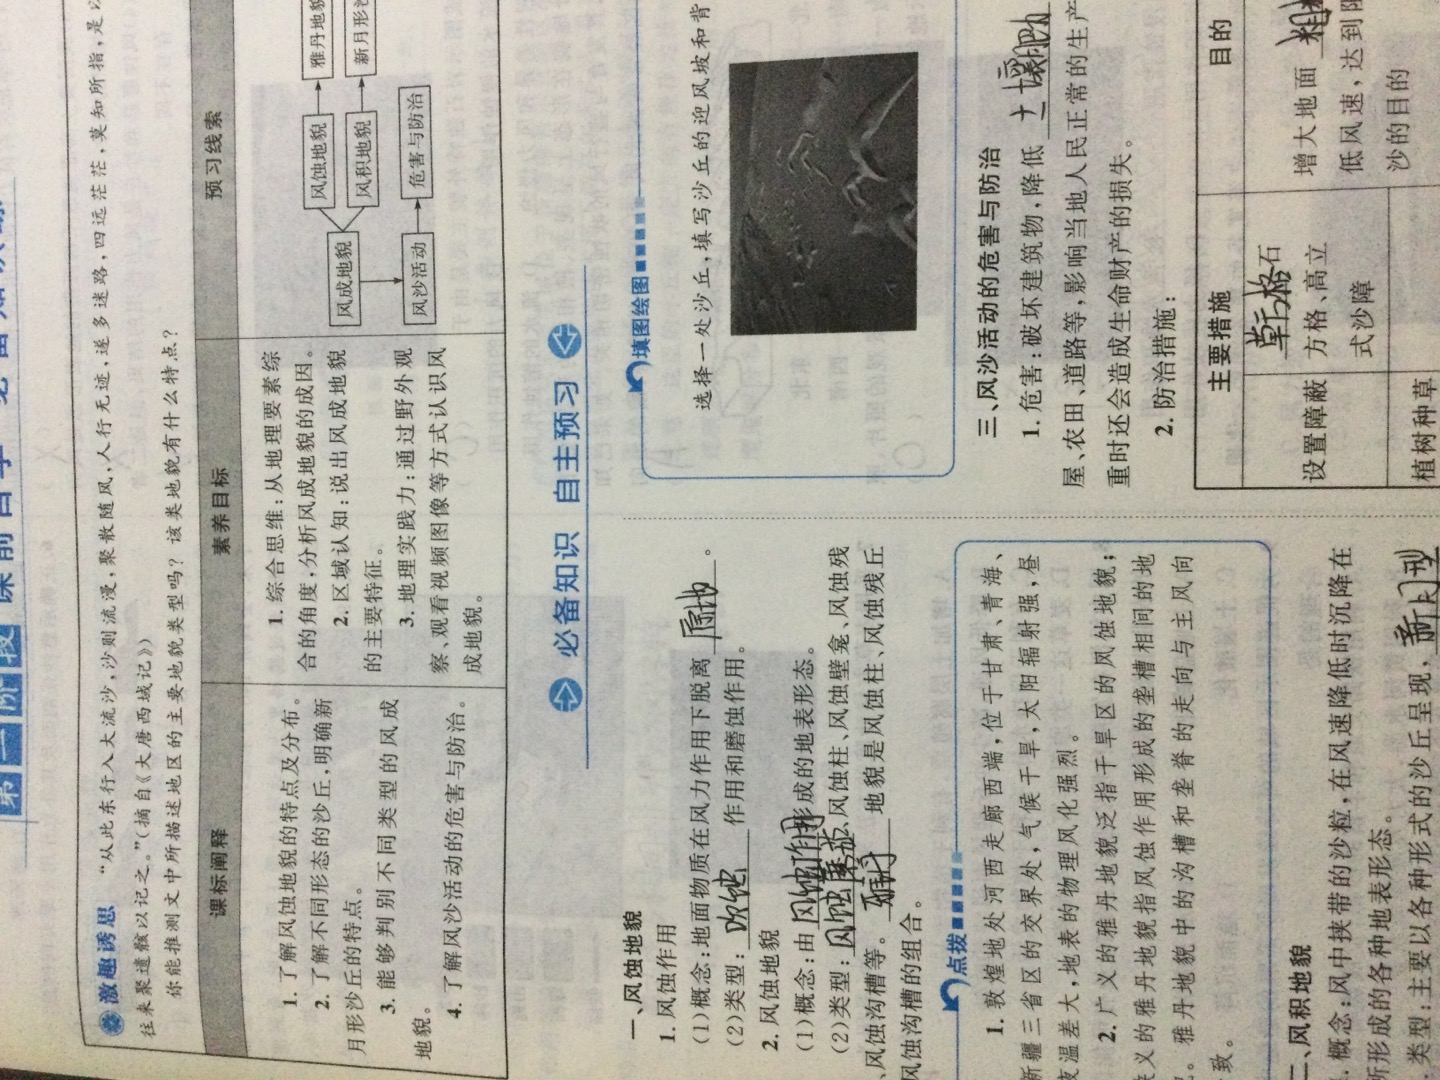 激趣诱思
“从此东行入大流沙,沙则流漫,聚散随风,人行无迹,遂多迷路,四远茫茫,莫知所指,是以
往来聚遗骸以记之。”(摘自《大唐西域记》)
你能推测文中所描述地区的主要地貌类型吗?该类地貌有什么特点?
课标阐释
素养目标
预习线索
1.了解风蚀地貌的特点及分布。
2.了解不同形态的沙丘,明确新
月形沙丘的特点。
3.能够判别不同类型的风成
地貌。
4.了解风沙活动的危害与防治。
1.综合思维:从地理要素综
合的角度,分析风成地貌的成因。
2.区域认知:说出风成地貌
的主要特征。
3.地理实践力:通过野外观
察、观看视频图像等方式认识风
成地貌。
风成地貌
风蚀地貌
雅丹地貌
风积地貌
新月形沙
风沙活动
危害与防治
必备知识 自主预习
一、风蚀地貌
1.风蚀作用
(1)概念:地面物质在风力作用下脱离原地。
(2)类型:吹蚀作用和磨蚀作用。
2.风蚀地貌
(1)概念:由风蚀作用形成的地表形态。
(2)类型:风蚀蘑菇、风蚀柱、风蚀壁龛、风蚀残
、风蚀沟槽等。雅丹地貌是风蚀柱、风蚀残丘
风蚀沟槽的组合。
点拨
1.敦煌地处河西走廊西端,位于甘肃、青海、
新疆三省区的交界处,气候干旱,太阳辐射强,昼
夜温差大,地表的物理风化强烈。
2.广义的雅丹地貌泛指干旱区的风蚀地貌;
义的雅丹地貌指风蚀作用形成的垄槽相间的地
。雅丹地貌中的沟槽和垄脊的走向与主风向
致。
二、风积地貌
概念:风中挟带的沙粒,在风速降低时沉降在
所形成的各种地表形态。
类型:主要以各种形式的沙丘呈现,新月型
填图绘图
选择一处沙丘,填写沙丘的迎风坡和背
三、风沙活动的危害与防治
1.危害:破坏建筑物,降低土壤肥力
屋、农田、道路等,影响当地人民正常的生产
重时还会造成生命财产的损失。
2.防治措施:
主要措施
目的
设置障蔽
草格石
方格、高立
式沙障
增大地面粗糙
低风速,达到阻
沙的目的
植树种草